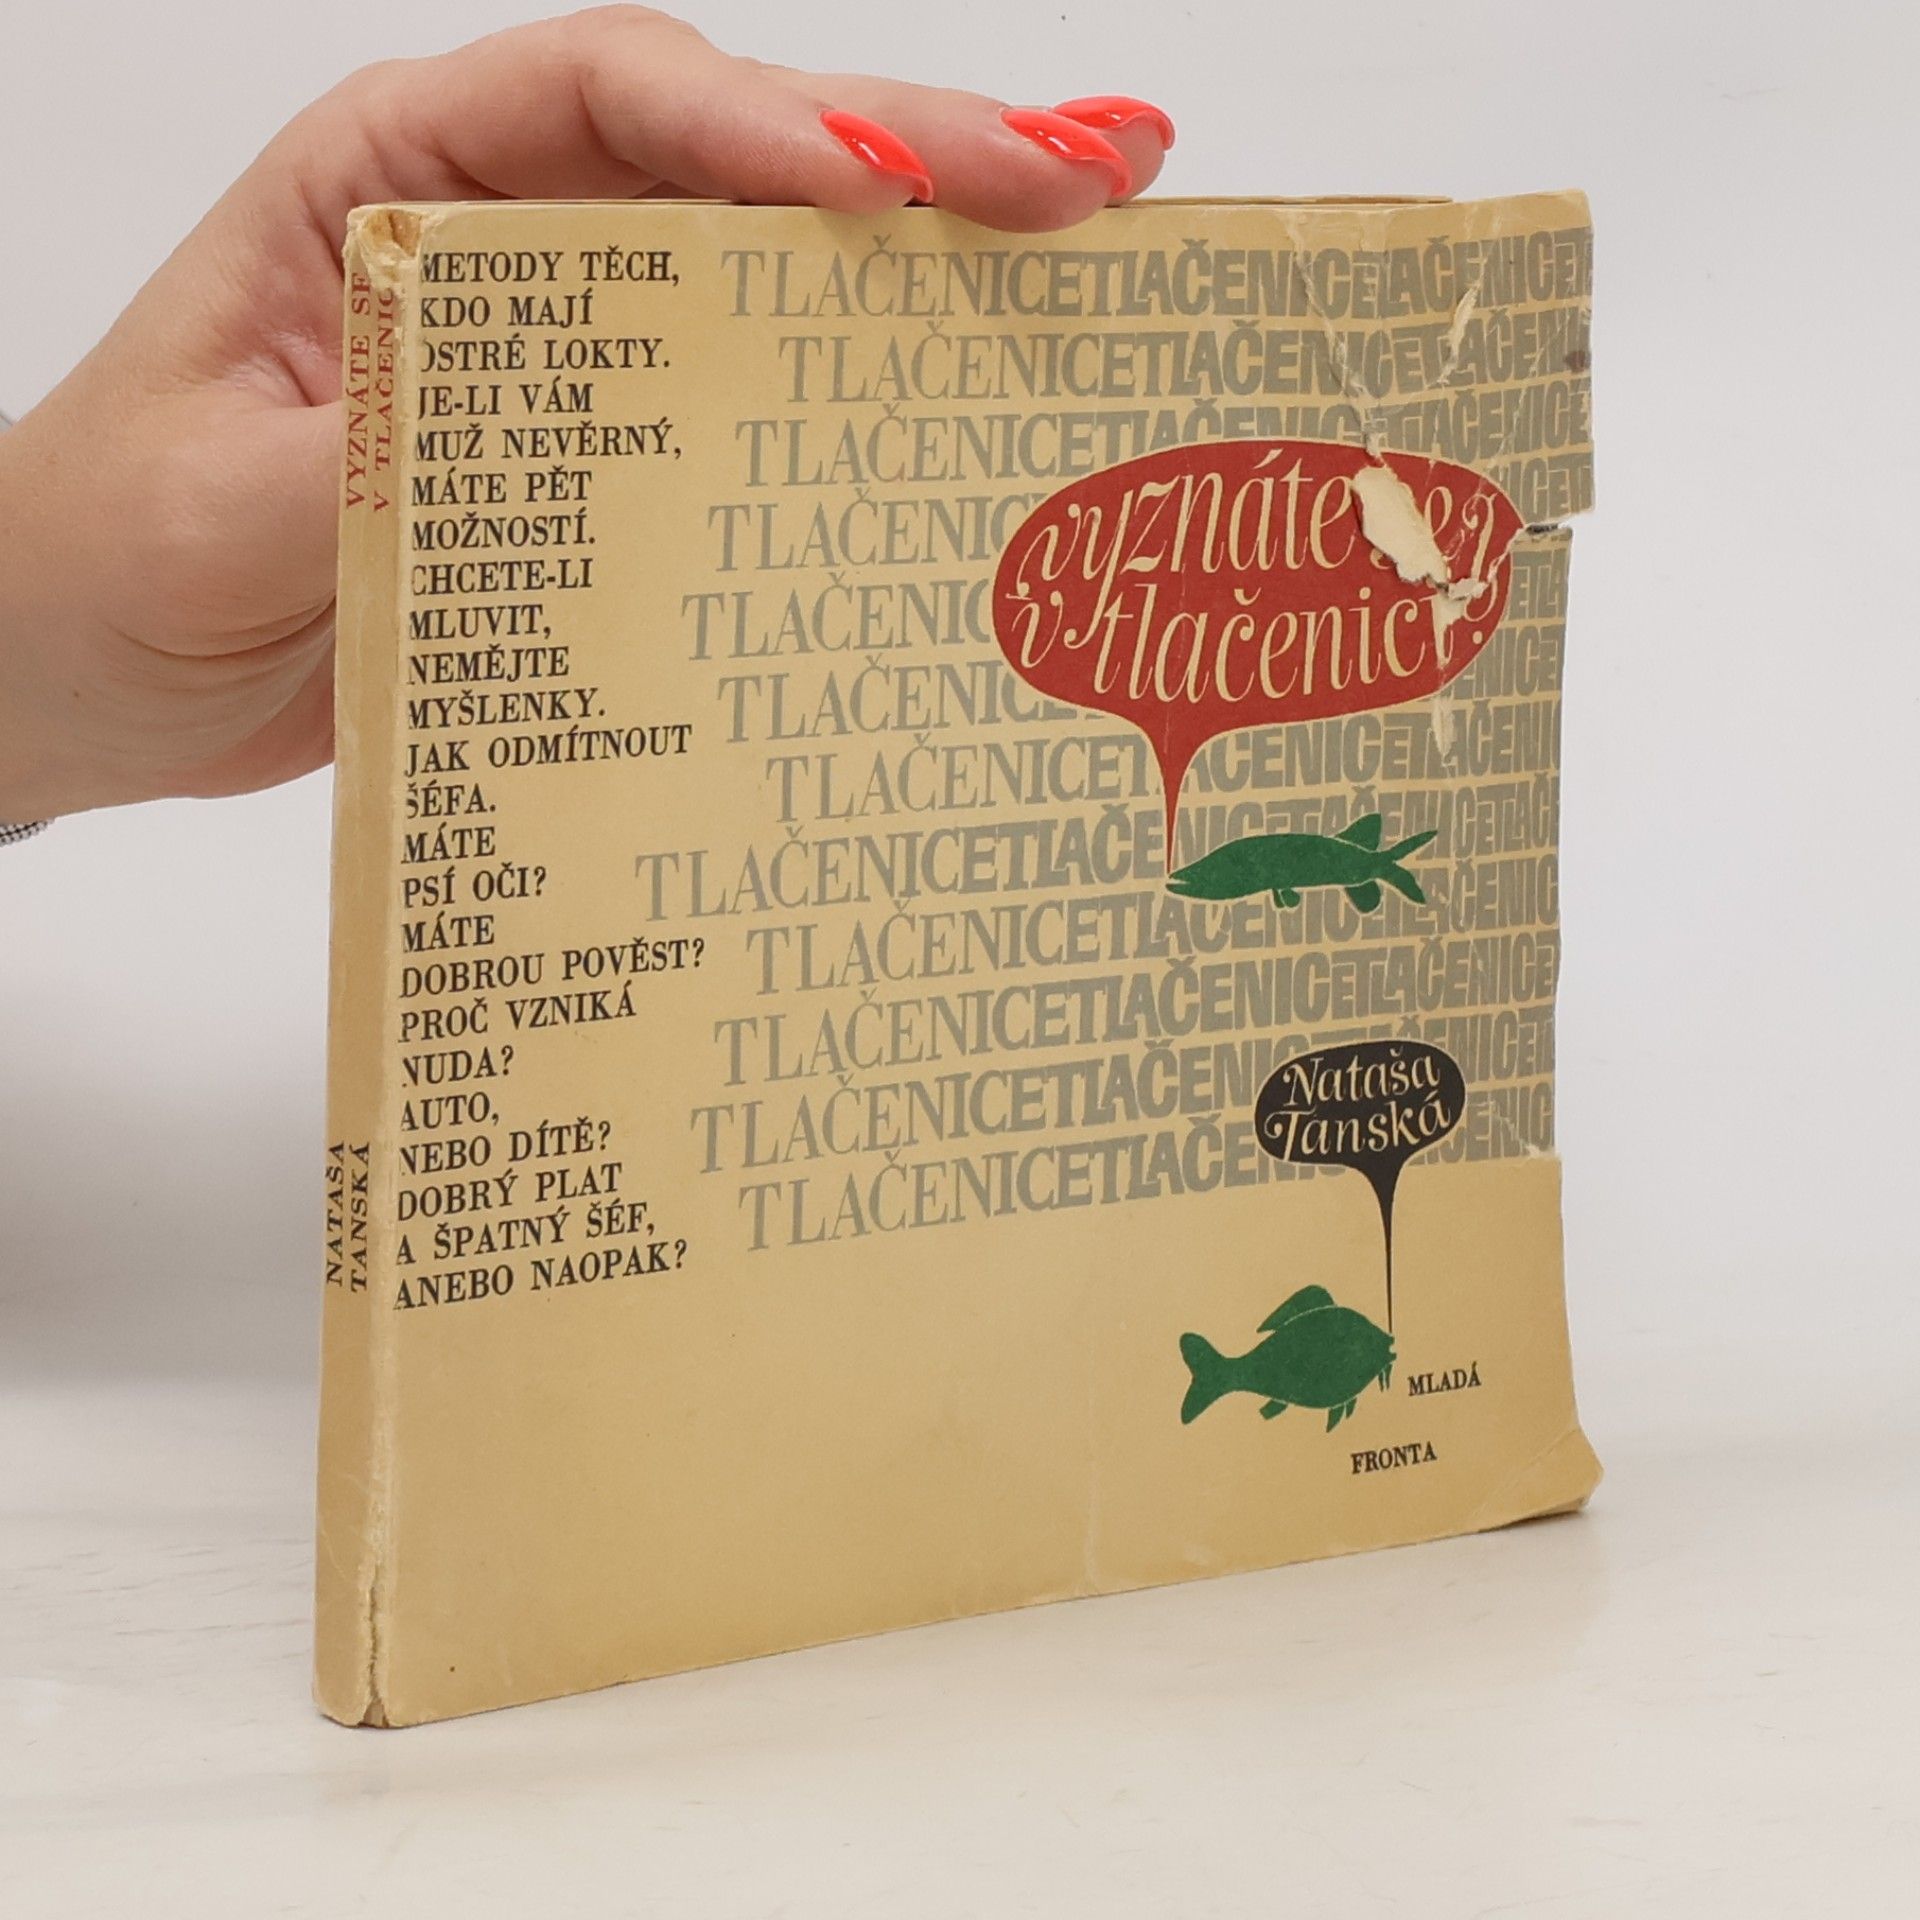 VYZNÁTE SE
V TLAČENIC
NATAŠA
TANSKÁ
METODY TĚCH,
KDO MAJÍ
OSTRÉ LOKTY.
JE-LI VÁM
MUŽ NEVĚRNÝ,
MÁTE PĚT
MOŽNOSTÍ.
CHCETE-LI
MLUVIT,
NEMĚJTE
MYŠLENKY.
JAK ODMÍTNOUT
ŠÉFA.
MÁTE
PSÍ OČI?
MÁTE
DOBROU POVĚST?
PROČ VZNIKÁ
NUDA?
AUTO,
NEBO DÍTĚ?
DOBRÝ PLAT
A ŠPATNÝ ŠÉF,
ANEBO NAOPAK?
TLAČENICETLAČENICETLAČENICET
TLAČENICETLAČENICETLAČENI
TLAČENICETLAČENICETLAČENICE
TLAČENIC ICET
TLAČENIC ICETLA
TLAČENICE ENICE
TLAČENICETLAČENICETLAČENI
TLAČENICETLAČENICETLAČENICETLAČ
TLAČENICETLAČENICETLAČENIC
TLAČENICETLAČENICETLAČENICE
TLAČENICETLAČENIC ENICET
TLAČENICETLAČEN ENIC
vyznáte se
v tlačenici?
Nataša
Tanská
MLADÁ
FRONTA